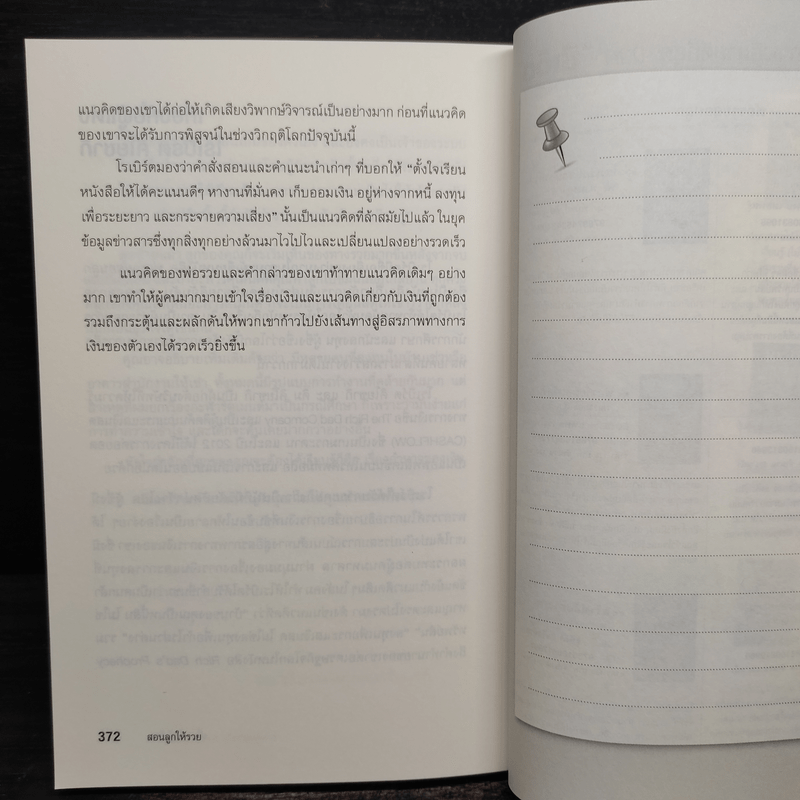 แนวคิดของเขาได้ก่อให้เกิดเสียงวิพากษ์วิจารณ์เป็นอย่างมาก ก่อนที่แนวคิด
ของเขาจะได้รับการพิสูจน์ในช่วงวิกฤติโลกปัจจุบันนี้
โรเบิร์ตมองว่าคำสั่งสอนและคำแนะนำเก่าๆ ที่บอกให้ “ตั้งใจเรียน
หนังสือให้ได้คะแนนดีๆ หางานที่มั่นคง เก็บออมเงิน อยู่ห่างจากหนี้ ลงทุน
เพื่อระยะยาว และกระจายความเสี่ยง” นั้นเป็นแนวคิดที่ล้าสมัยไปแล้ว ในยุค
ข้อมูลข่าวสารซึ่งทุกสิ่งทุกอย่างล้วนมาไวไปไวและเปลี่ยนแปลงอย่างรวดเร็ว
แนวคิดของพ่อรวยและคำกล่าวของเขาท้าทายแนวคิดเดิมๆ อย่าง
มาก เขาทำให้ผู้คนมากมายเข้าใจเรื่องเงินและแนวคิดเกี่ยวกับเงินที่ถูกต้อง
รวมถึงกระตุ้นและผลักดันให้พวกเขาก้าวไปยังเส้นทางสู่อิสรภาพทางการ
เงินของตัวเองได้รวดเร็วยิ่งขึ้น
372 สอนลูกให้รวย